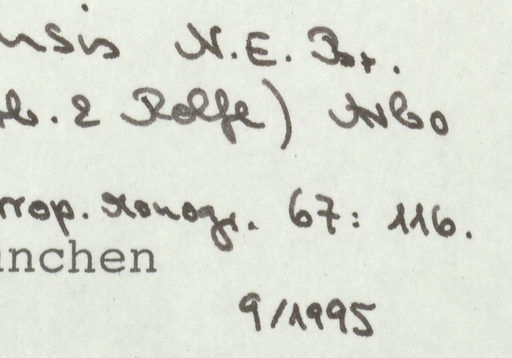 ensis N.E. Br.
b. & Rolfe) Arbo
rop. Monogr. 67: 116.
nchen
9/1995